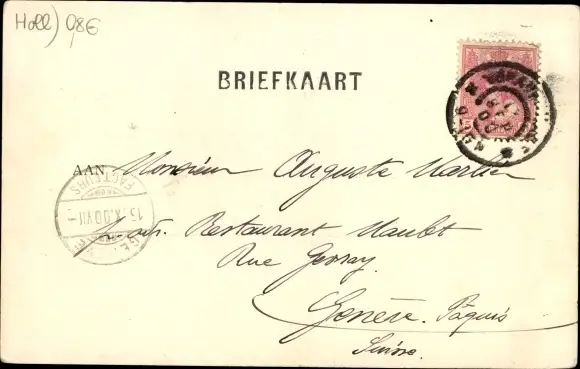 Holl) 0,8€
BRIEFKAART
AAN Monsieur Auguste Martin
Restaurant Maulet
Rue Gevray
Genève. Pâquis
Suisse.
FACTEURS
13.IX.00.VII